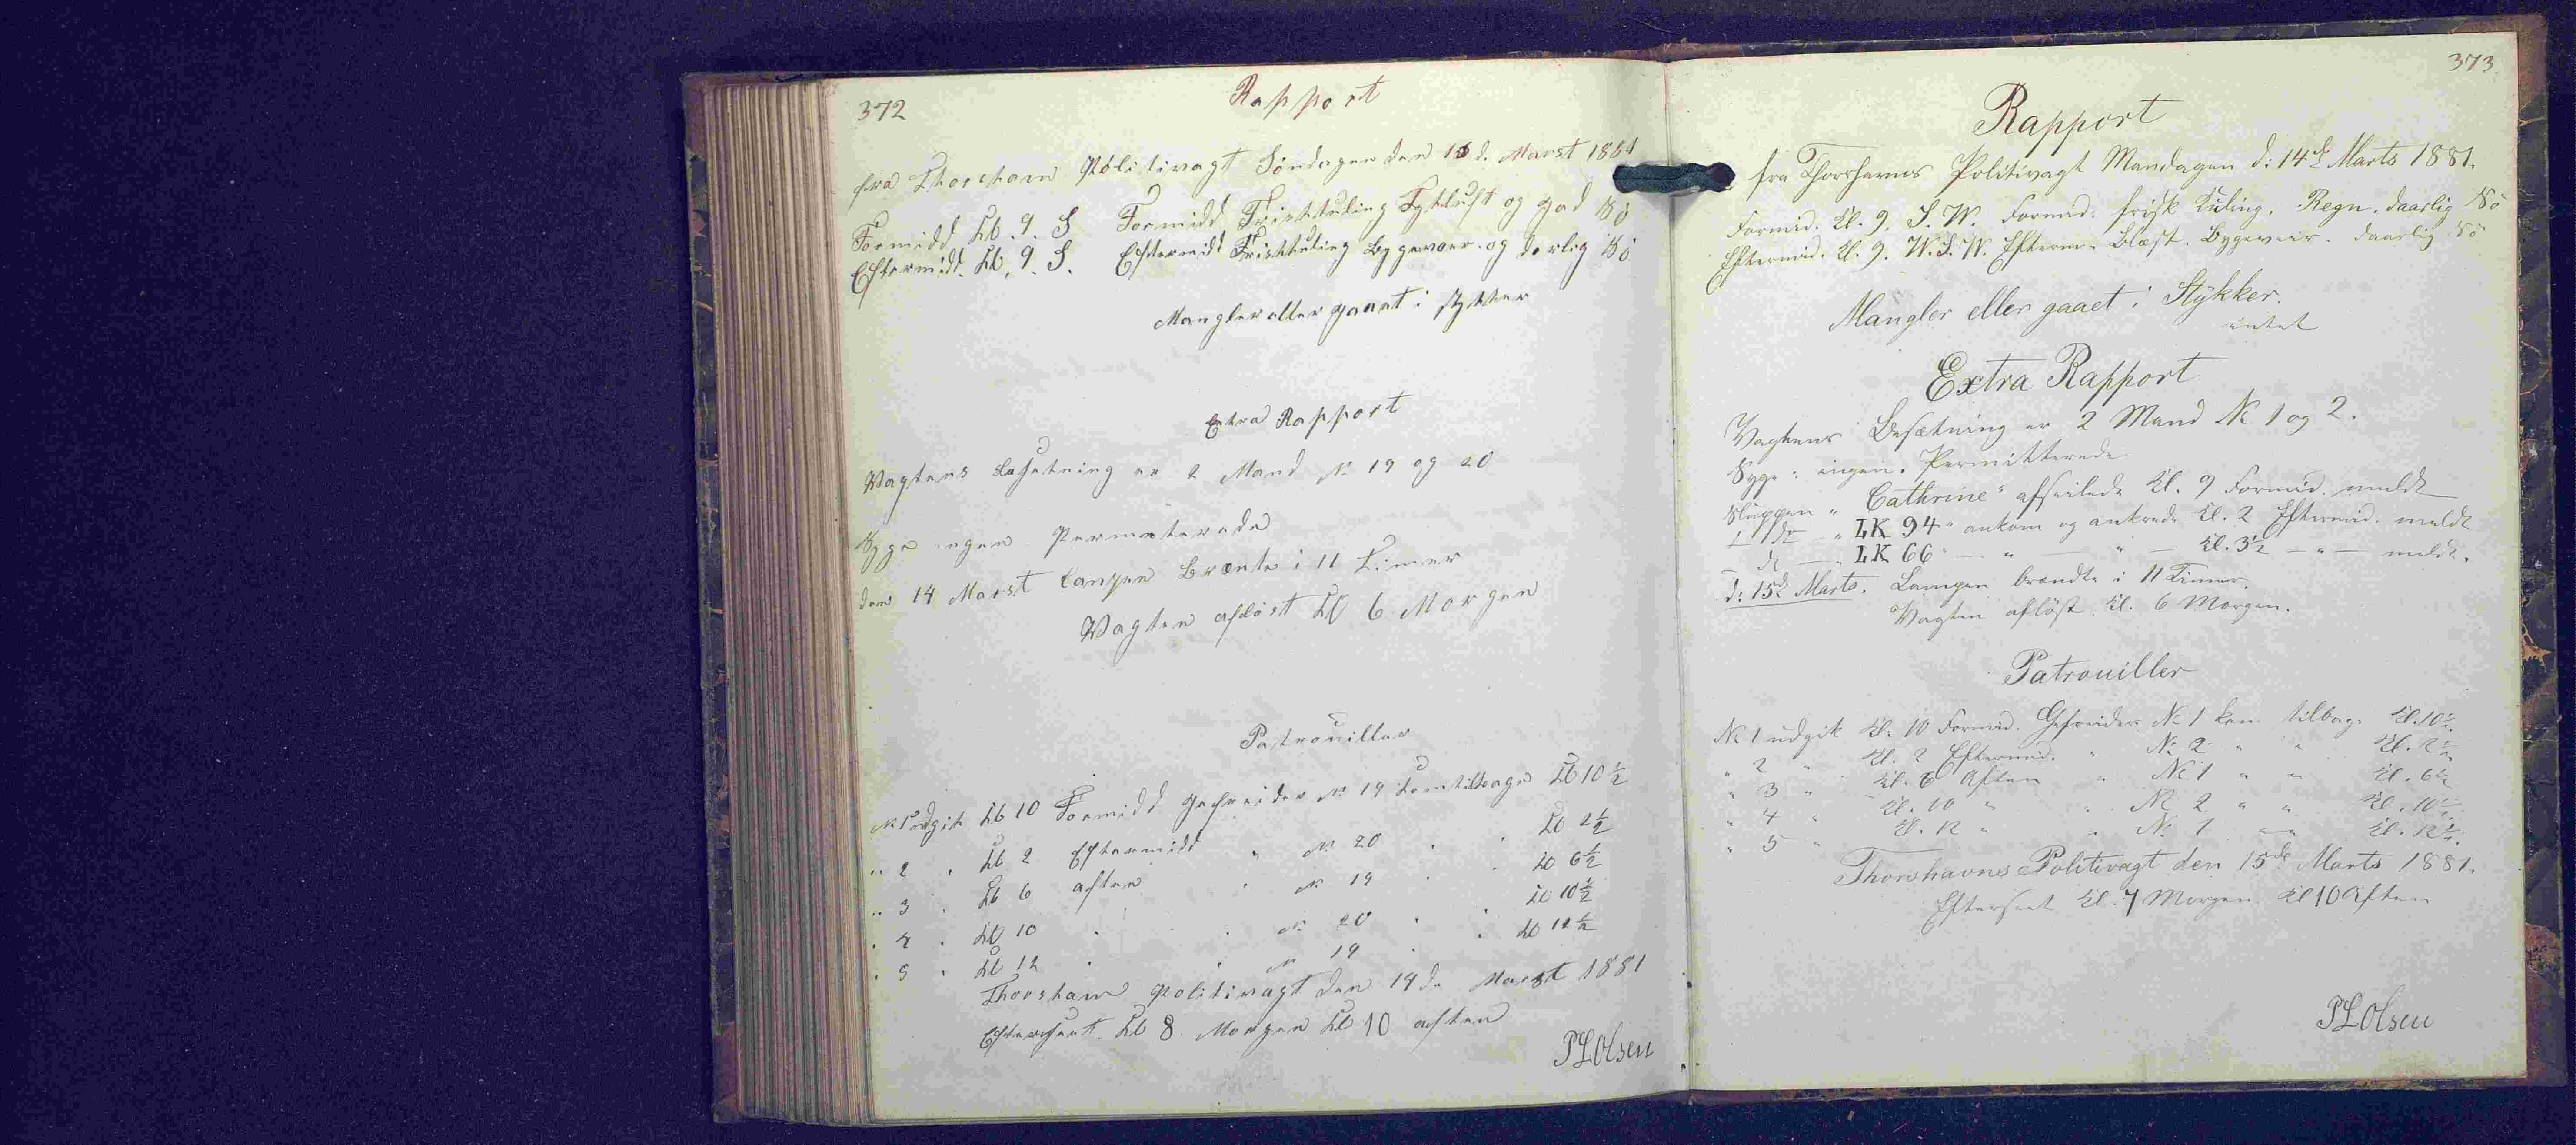 372
Rapport
fra Thorshavn Politivagt Søndagen den 13 d. Marst 1881
Formidd Kl. 9. S Formidd Frisk Kuling Tykluft og god Sö
Eftermidd. Kl. 9. S. Eftermidd Frisk Kuling Bygevær og dorlig Sö
Mangler eller gaaet i stykker
Extra Rapport
Vagtens Besetning er 2 Mand No 19 og 20
Syge ingen Permeterede
den 14 Marst Lampen Brænte i 11 Timer
Vagten aflöst Kl 6 Morgen
Patrouiller
No 1 udgik Kl 10 Formidd Gefreider No 19 kom tilbage Kl 10½
" 2 " Kl 2 Eftermidd " No 20 " " Kl 2½
" 3 " Kl 6 aften " No 19 " " Kl 6½
" 4 " Kl 10 " " No 20 " " Kl 10½
" 5 " Kl 12 " " No 19 " " Kl 12½
Thorshavn Politivagt den 14 d. Marst 1881
Efterseet. Kl 8. Morgen Kl 10 aften
PLOlsen
373.
Rapport
fra Thorshavns Politivagt Mandagen d: 14de Marts 1881.
Formid. Kl. 9. S. W. Formid: frisk Kuling. Regn. daarlig Sö
Eftermid. Kl. 9. W. S. W. Efterm: Blæst. Bygeveir. daarlig Sö
Mangler eller gaaet i Stykker.
intet
Extra Rapport
Vagtens Besætning er 2 Mand No 1 og 2.
Syge: ingen. Permitterede
Sluppen "Cathrine" afseilede Kl. 9 Formid. meldt
dt — "LK 94" ankom og ankrede Kl. 2 Eftermid. meldt
dt — "LK 66" — " — " — Kl. 3½ — " — meldt.
d: 15de Marts. Lampen brændte i 11 Timer.
Vagten aflöst Kl. 6 Morgen.
Patrouiller
No 1 udgik Kl. 10 Formid. Gefreider No 1 kom tilbage Kl. 10½.
" 2 " Kl. 2 Eftermid. " No 2 " " Kl. 2½
" 3 " Kl. 6 Aften " No 1 " " Kl. 6½
" 4 " Kl. 10 " " No 2 " " Kl. 10½.
" 5 " Kl. 12 " " No 1 " " Kl. 12½.
Thorshavns Politivagt den 15de Marts 1881.
Efterseet Kl. 7 Morgen Kl 10 Aften
PLOlsen